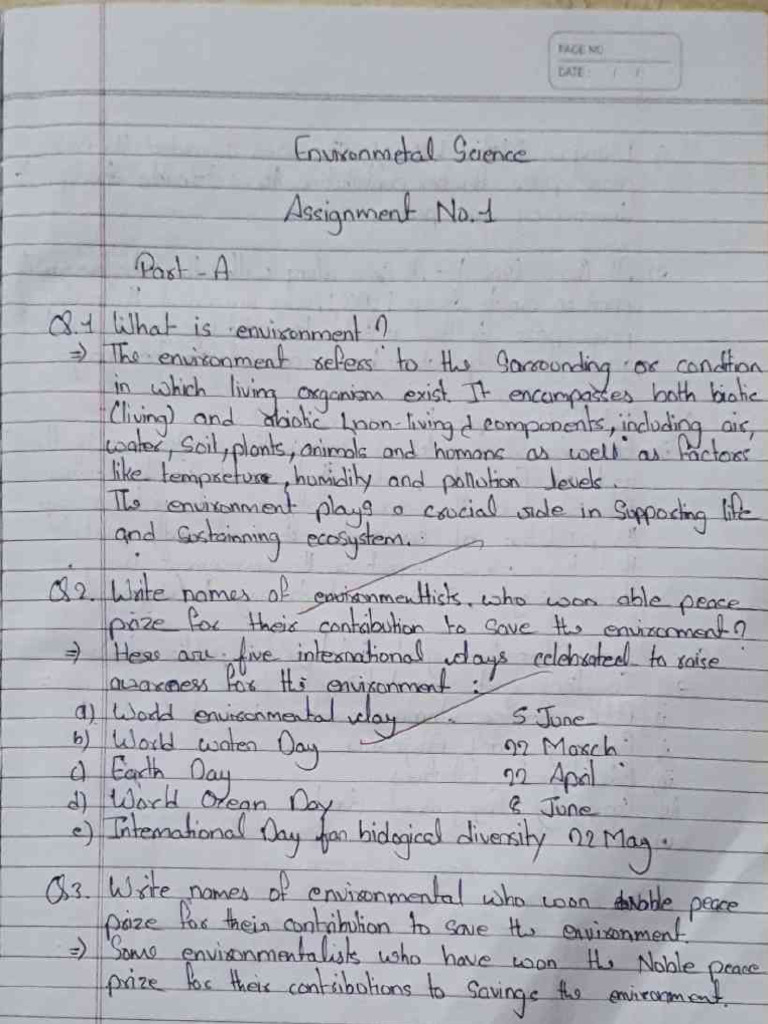 PAGE NO
DATE: / /
Environmetal Science
Assignment No.1
Part - A
Q.1 What is environment?
⇒ The environment refers to the Sarrounding or condtion
in which living organism exist. It encompasses both biotic
(living) and abiotic (non-living) components, including air,
water, Soil, plants, animals and homans as well as factors
like tempreture, humidity and pollution levels.
The environment plays a crucial role in Supporting life
and Sostainning ecosystem.
Q2. Write names of environmenttists, who won able peace
prize for their contribution to Save the environment?
⇒ Heres are five international days celebrated to raise
awareness for the environment :
a) World environmental day 5 June
b) World water Day 22 March
c) Earth Day 22 April
d) World Ocean Day 8 June
e) International Day for biological diversity 22 May.
Q3. Write names of environmental who won Noble peace
prize for their contribution to save the environment.
⇒ Some environmentalists who have won the Noble peace
prize for their contributions to Savinge the environment.